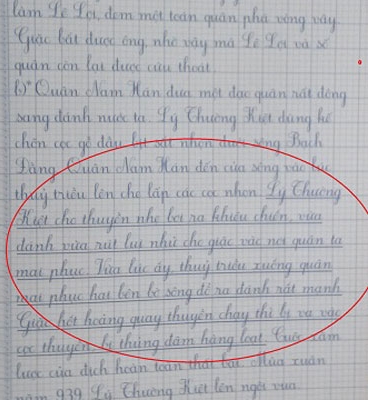 làm Lê Lợi, đem một toán quân phá vòng vây
Giặc bắt được ông, nhờ vậy mà Lê Lợi và số
quân còn lại được cứu thoát.
b)* Quân Nam Hán đưa một đạo quân rất đông
sang đánh nước ta. Lý Chương Kiệt dùng kế
chôn cọc gỗ đầu bịt sắt nhọn dưới sông Bạch
Đằng. Quân Nam Hán đến cửa sông vào lúc
thuỷ triều lên che lấp các cọc nhọn. Lý Chương
Kiệt cho thuyền nhẹ bơi ra khiêu chiến, vừa
đánh vừa rút lui nhử cho giặc vào nơi quân ta
mai phục. Vừa lúc ấy, thuỷ triều xuống quân
mai phục hai bên bờ sông đổ ra đánh rất mạnh
Giặc hốt hoảng quay thuyền chạy thì bị va vào
cọc thuyền bị thủng đắm hàng loạt. Cuộc xâm
lược của địch hoàn toàn thất bại. Mùa xuân
năm 939 Lý Chương Kiệt lên ngôi vua